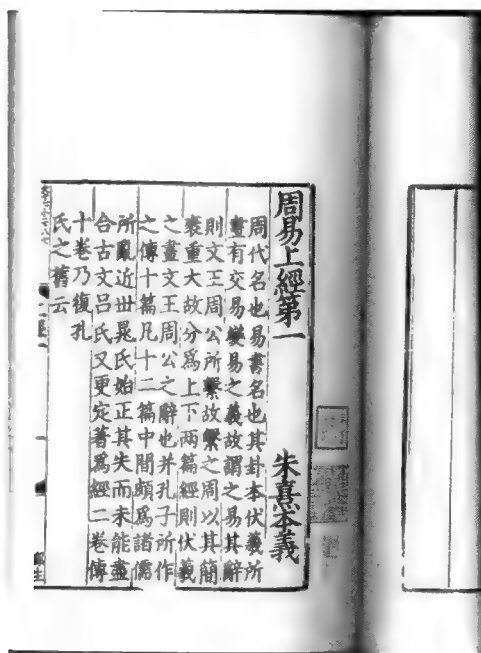 周易上經第一　朱熹本義
周代名也易書名也其卦本伏羲所
畫有交易變易之義故謂之易其辭
則文王周公所繫故繫之周以其簡
袠重大故分為上下兩篇經則伏羲
之畫文王周公之辭也并孔子所作
之傳十篇凡十二篇中間頗為諸儒
所亂近世晁氏始正其失而未能盡
合古文呂氏又更定著為經二卷傳
十卷乃復孔
氏之舊云